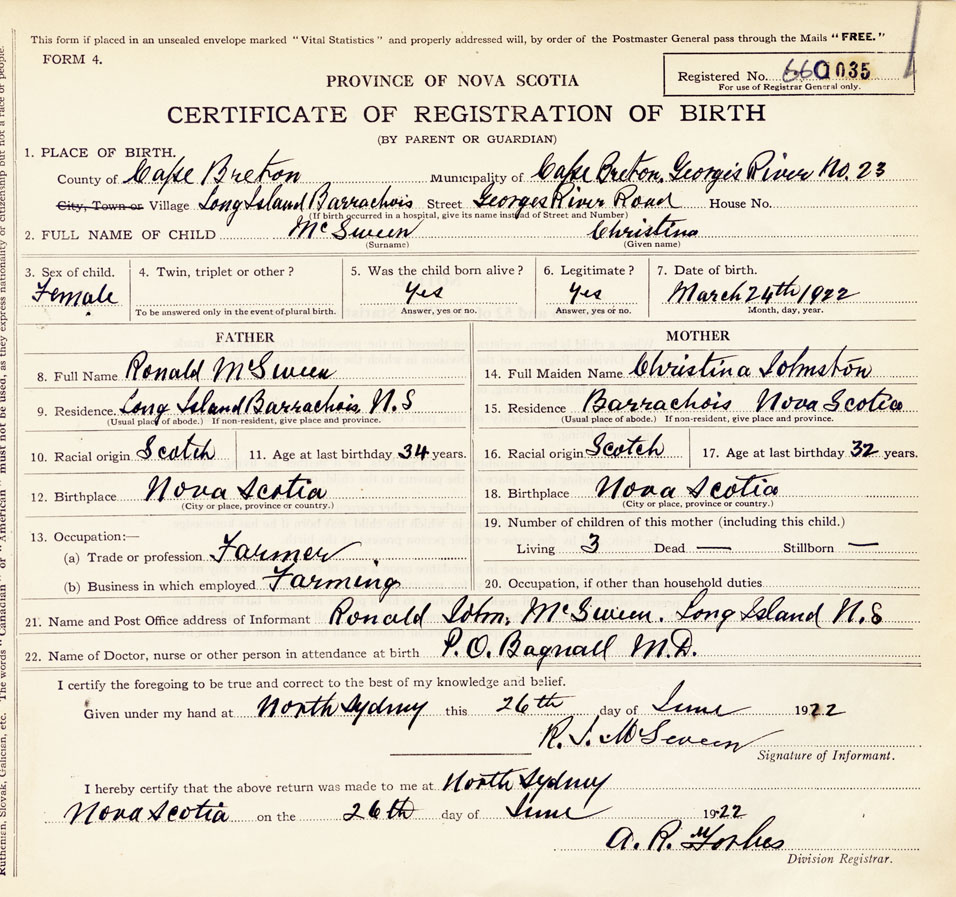 This form if placed in an unsealed envelope marked "Vital Statistics" and properly addressed will, by order of the Postmaster General pass through the Mails "FREE."
FORM 4.
PROVINCE OF NOVA SCOTIA
Registered No. 035
For use of Registrar General only.
CERTIFICATE OF REGISTRATION OF BIRTH
(BY PARENT OR GUARDIAN)
1. PLACE OF BIRTH.
County of Cape Breton Municipality of Cape Breton, Georges River No. 23
City, Town or Village Long Island Barrachois Street Georges River Road House No.
(If birth occurred in a hospital, give its name instead of Street and Number)
2. FULL NAME OF CHILD McSween Christina
(Surname) (Given name)
3. Sex of child. 4. Twin, triplet or other? 5. Was the child born alive? 6. Legitimate? 7. Date of birth.
Female Yes Yes March 24th 1922
To be answered only in the event of plural birth. Answer, yes or no. Answer, yes or no. Month, day, year.
FATHER MOTHER
8. Full Name Ronald McSween 14. Full Maiden Name Christina Johnston
9. Residence. Long Island Barrachois, N.S 15. Residence Barrachois Nova Scotia
(Usual place of abode.) If non-resident, give place and province. (Usual place of abode.) If non-resident, give place and province.
10. Racial origin Scotch 11. Age at last birthday 34 years. 16. Racial origin Scotch 17. Age at last birthday 32 years.
12. Birthplace Nova Scotia 18. Birthplace Nova Scotia
(City or place, province or country.) (City or place, province or country.)
13. Occupation:— 19. Number of children of this mother (including this child.)
(a) Trade or profession Farmer Living 3 Dead — Stillborn —
(b) Business in which employed Farming 20. Occupation, if other than household duties
21. Name and Post Office address of Informant Ronald John McSween. Long Island N.S
22. Name of Doctor, nurse or other person in attendance at birth P. O. Bagnall M.D.
I certify the foregoing to be true and correct to the best of my knowledge and belief.
Given under my hand at North Sydney this 26th day of June 1922
R. J. McSween
Signature of Informant.
I hereby certify that the above return was made to me at North Sydney
Nova Scotia on the 26th day of June 1922
A. R. Forbes
Division Registrar.
Ruthenian, Slovak, Galician, etc. The words "Canadian" or "American" must not be used, as they express nationality or citizenship but not a race or people.